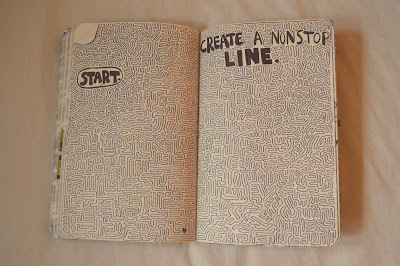 START.
CREATE A NONSTOP
LINE.